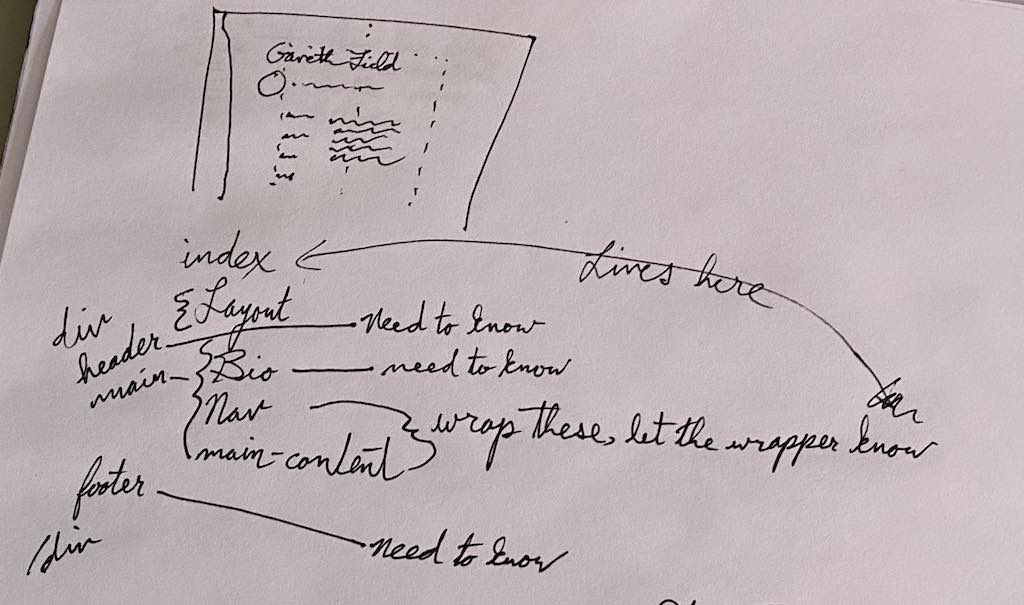 Gareth Field
index
Lives here
Layout
div
header
need to know
main
Bio
need to know
Nav
main-content
wrap these, let the wrapper know
footer
need to know
/div